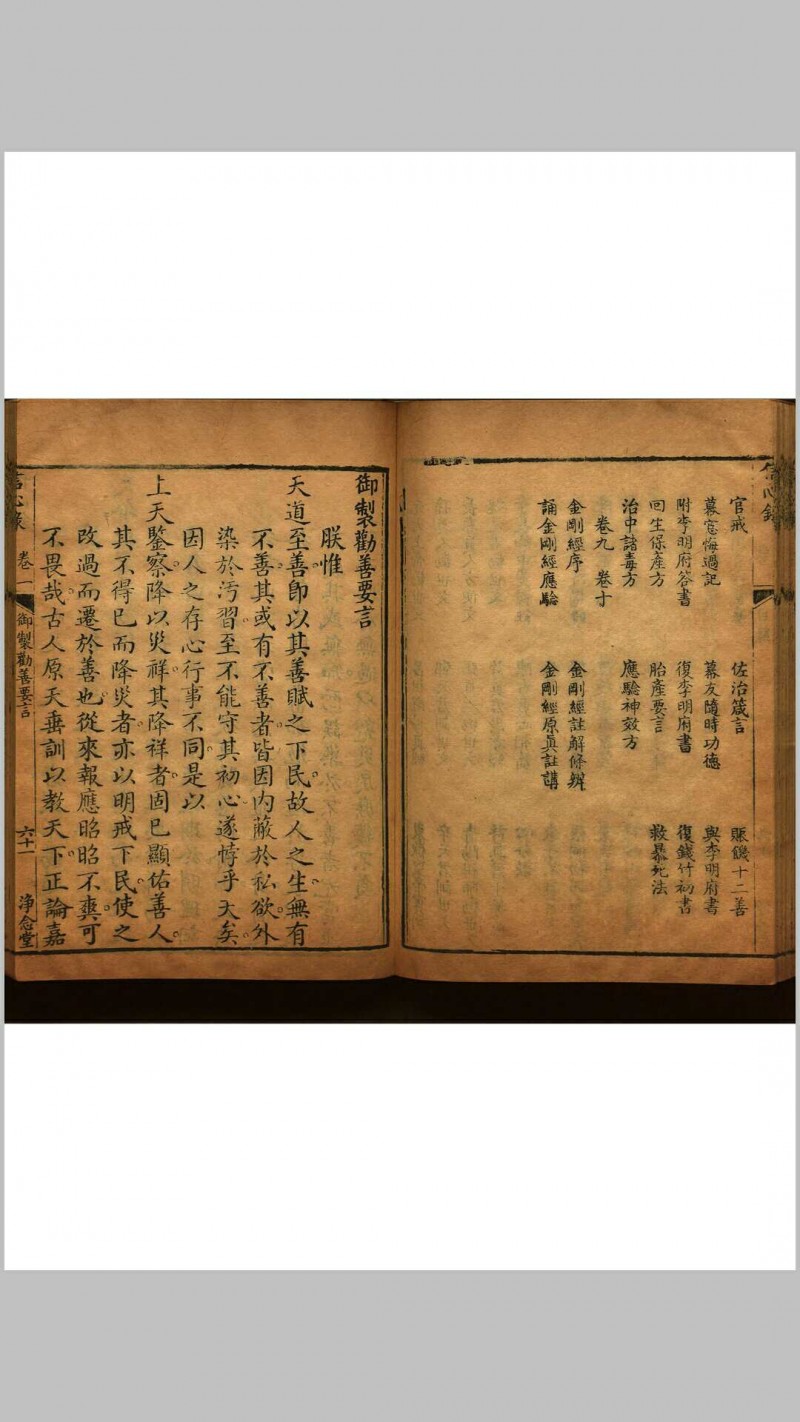 信心錄
官戒　佐治箴言　賑饑十二善
幕窓悔過記　幕友隨時功德　與李明府書
附李明府答書　復李明府書　復錢竹初書
回生保產方　胎產要言　救暴死法
治中諸毒方　應驗神效方
卷九　卷十
金剛經序　金剛經註解條辨
誦金剛經應驗　金剛經原眞註講
御製勸善要言
朕惟
天道至善。即以其善賦之下民。故人之生。無有
不善。其或有不善者。皆因內蔽於私欲。外
染於汚習。至不能守其初心。遂悖乎天矣。
因人之存心行事不同。是以
上天鑒察。降以災祥。其降祥者。固已顯佑善人。
其不得已而降災者。亦以明戒下民。使之
改過而遷於善也。從來報應昭昭不爽。可
不畏哉。古人原天垂訓。以教天下。正論嘉
信心錄　卷一　御製勸善要言　六十一　淨念堂